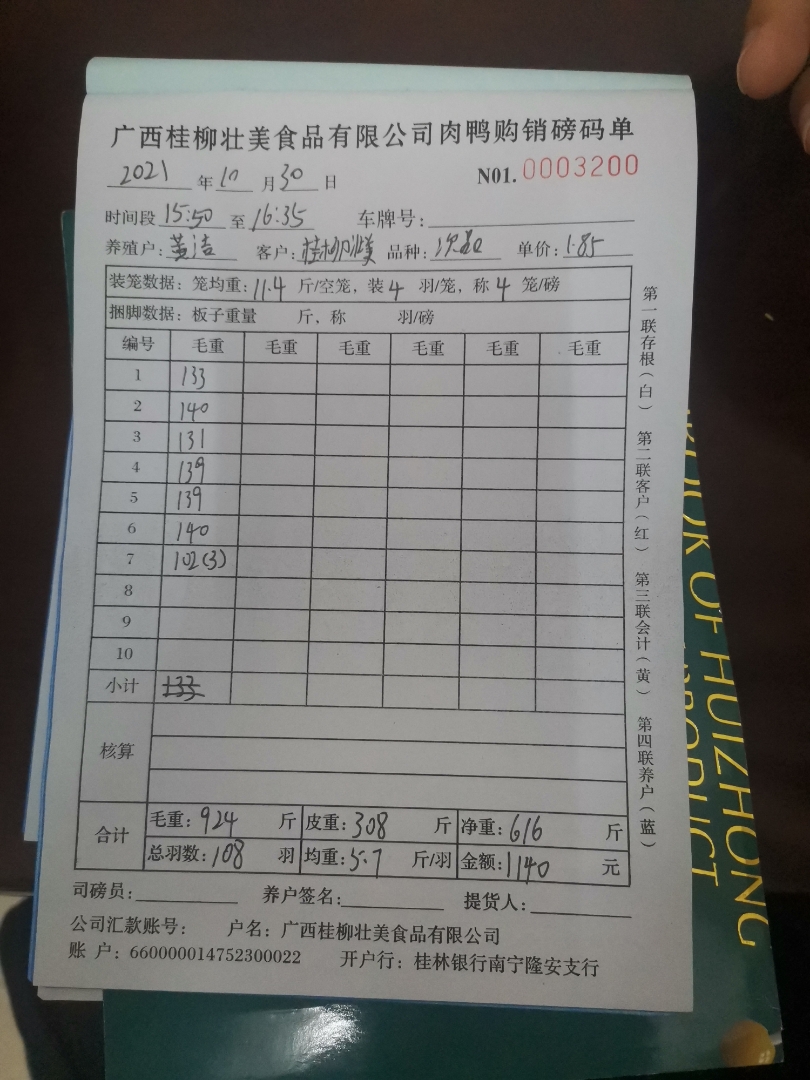 广西桂柳壮美食品有限公司肉鸭购销磅码单
2021 年 10 月 30 日 N01. 0003200
时间段 15:50 至 16:35 车牌号:
养殖户: 黄洁 客户: 桂柳壮美 品种: 次品 单价: 1.85
装笼数据: 笼均重: 11.4 斤/空笼, 装 4 羽/笼, 称 4 笼/磅
捆脚数据: 板子重量 斤, 称 羽/磅
编号 毛重 毛重 毛重 毛重 毛重 毛重
1 133
2 140
3 131
4 139
5 139
6 140
7 102(3)
8
9
10
小计 133
核算
合计 毛重: 924 斤 皮重: 308 斤 净重: 616 斤
总羽数: 108 羽 均重: 5.7 斤/羽 金额: 1140 元
司磅员: 养户签名: 提货人:
公司汇款账号: 户名: 广西桂柳壮美食品有限公司
账 户: 660000014752300022 开户行: 桂林银行南宁隆安支行
第一联存根(白) 第二联客户(红) 第三联会计(黄) 第四联养户(蓝)
OF HUIZHONG
PRODUCT